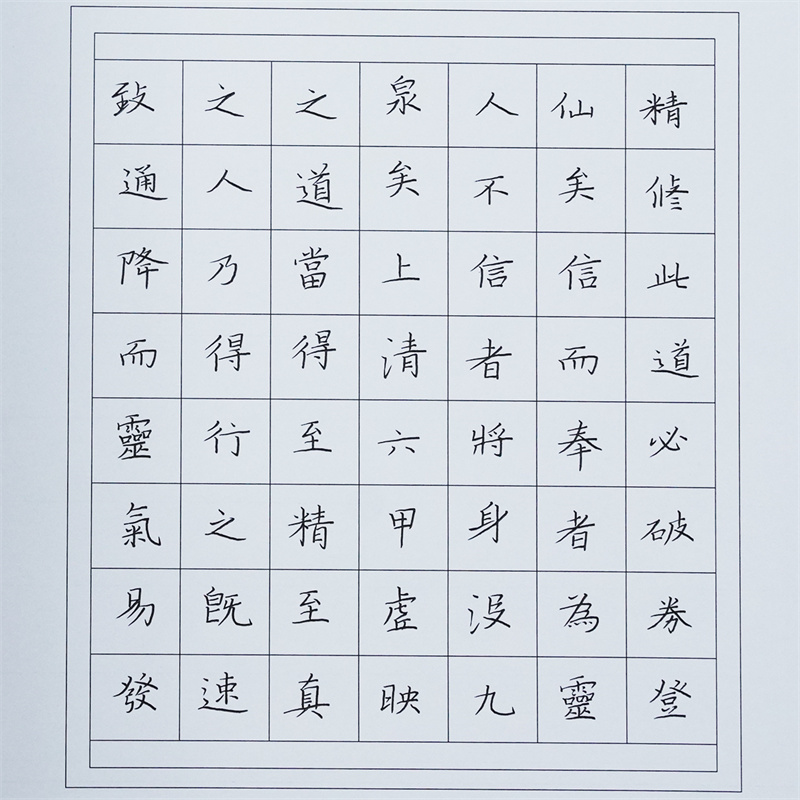 精修此道必破券登
仙矣信而奉者為靈
人不信者將身沒九
泉矣上清六甲虛映
之道當得至精至真
之人乃得行之既速
致通降而靈氣易發